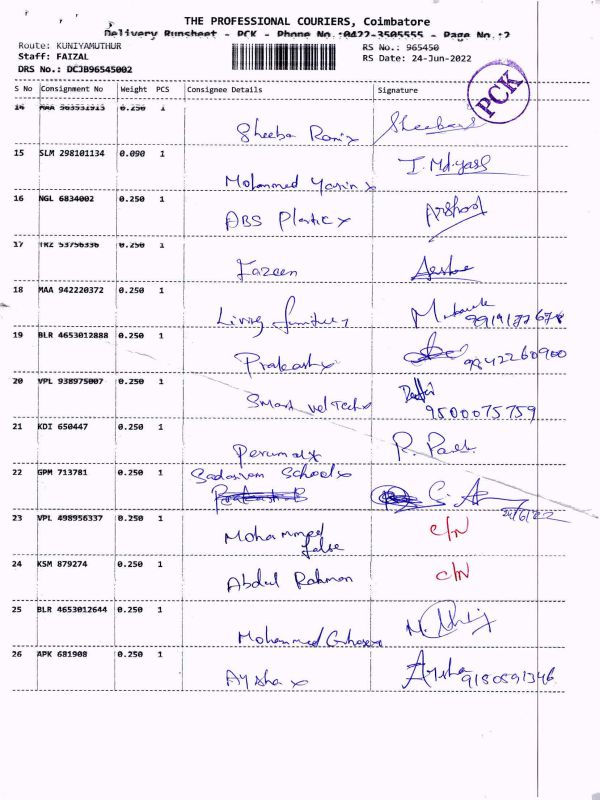 THE PROFESSIONAL COURIERS, Coimbatore
Delivery Runsheet - PCK - Phone No.:0422-3505555 - Page No.:2
Route: KUNIYAMUTHUR
RS No.: 965450
Staff: FAIZAL
RS Date: 24-Jun-2022
DRS No.: DCJB96545002
PCK
S No Consignment No Weight PCS Consignee Details Signature
14 MAA 563531913 0.250 1
Sheeba Rani x
15 SLM 298101134 0.090 1
Mohammed Yasin x
16 NGL 6834002 0.250 1
ABS Plastic x Arshad
17 TRZ 53756336 0.250 1
Fazeen
18 MAA 942220372 0.250 1
Living
19 BLR 4653012888 0.250 1
Prakash x 9842260900
20 VPL 938975007 0.250 1
Smart vel Tech x
9500075759
21 KDI 650447 0.250 1
Perumal x
22 GPM 713781 0.250 1
Sadasivam School x
24/6/22
23 VPL 498956337 0.250 1
Mohammed C/N
24 KSM 879274 0.250 1
Abdul Rahman C/N
25 BLR 4653012644 0.250 1
Mohammed
26 APK 681908 0.250 1
Aysha x Aysha 9150591346